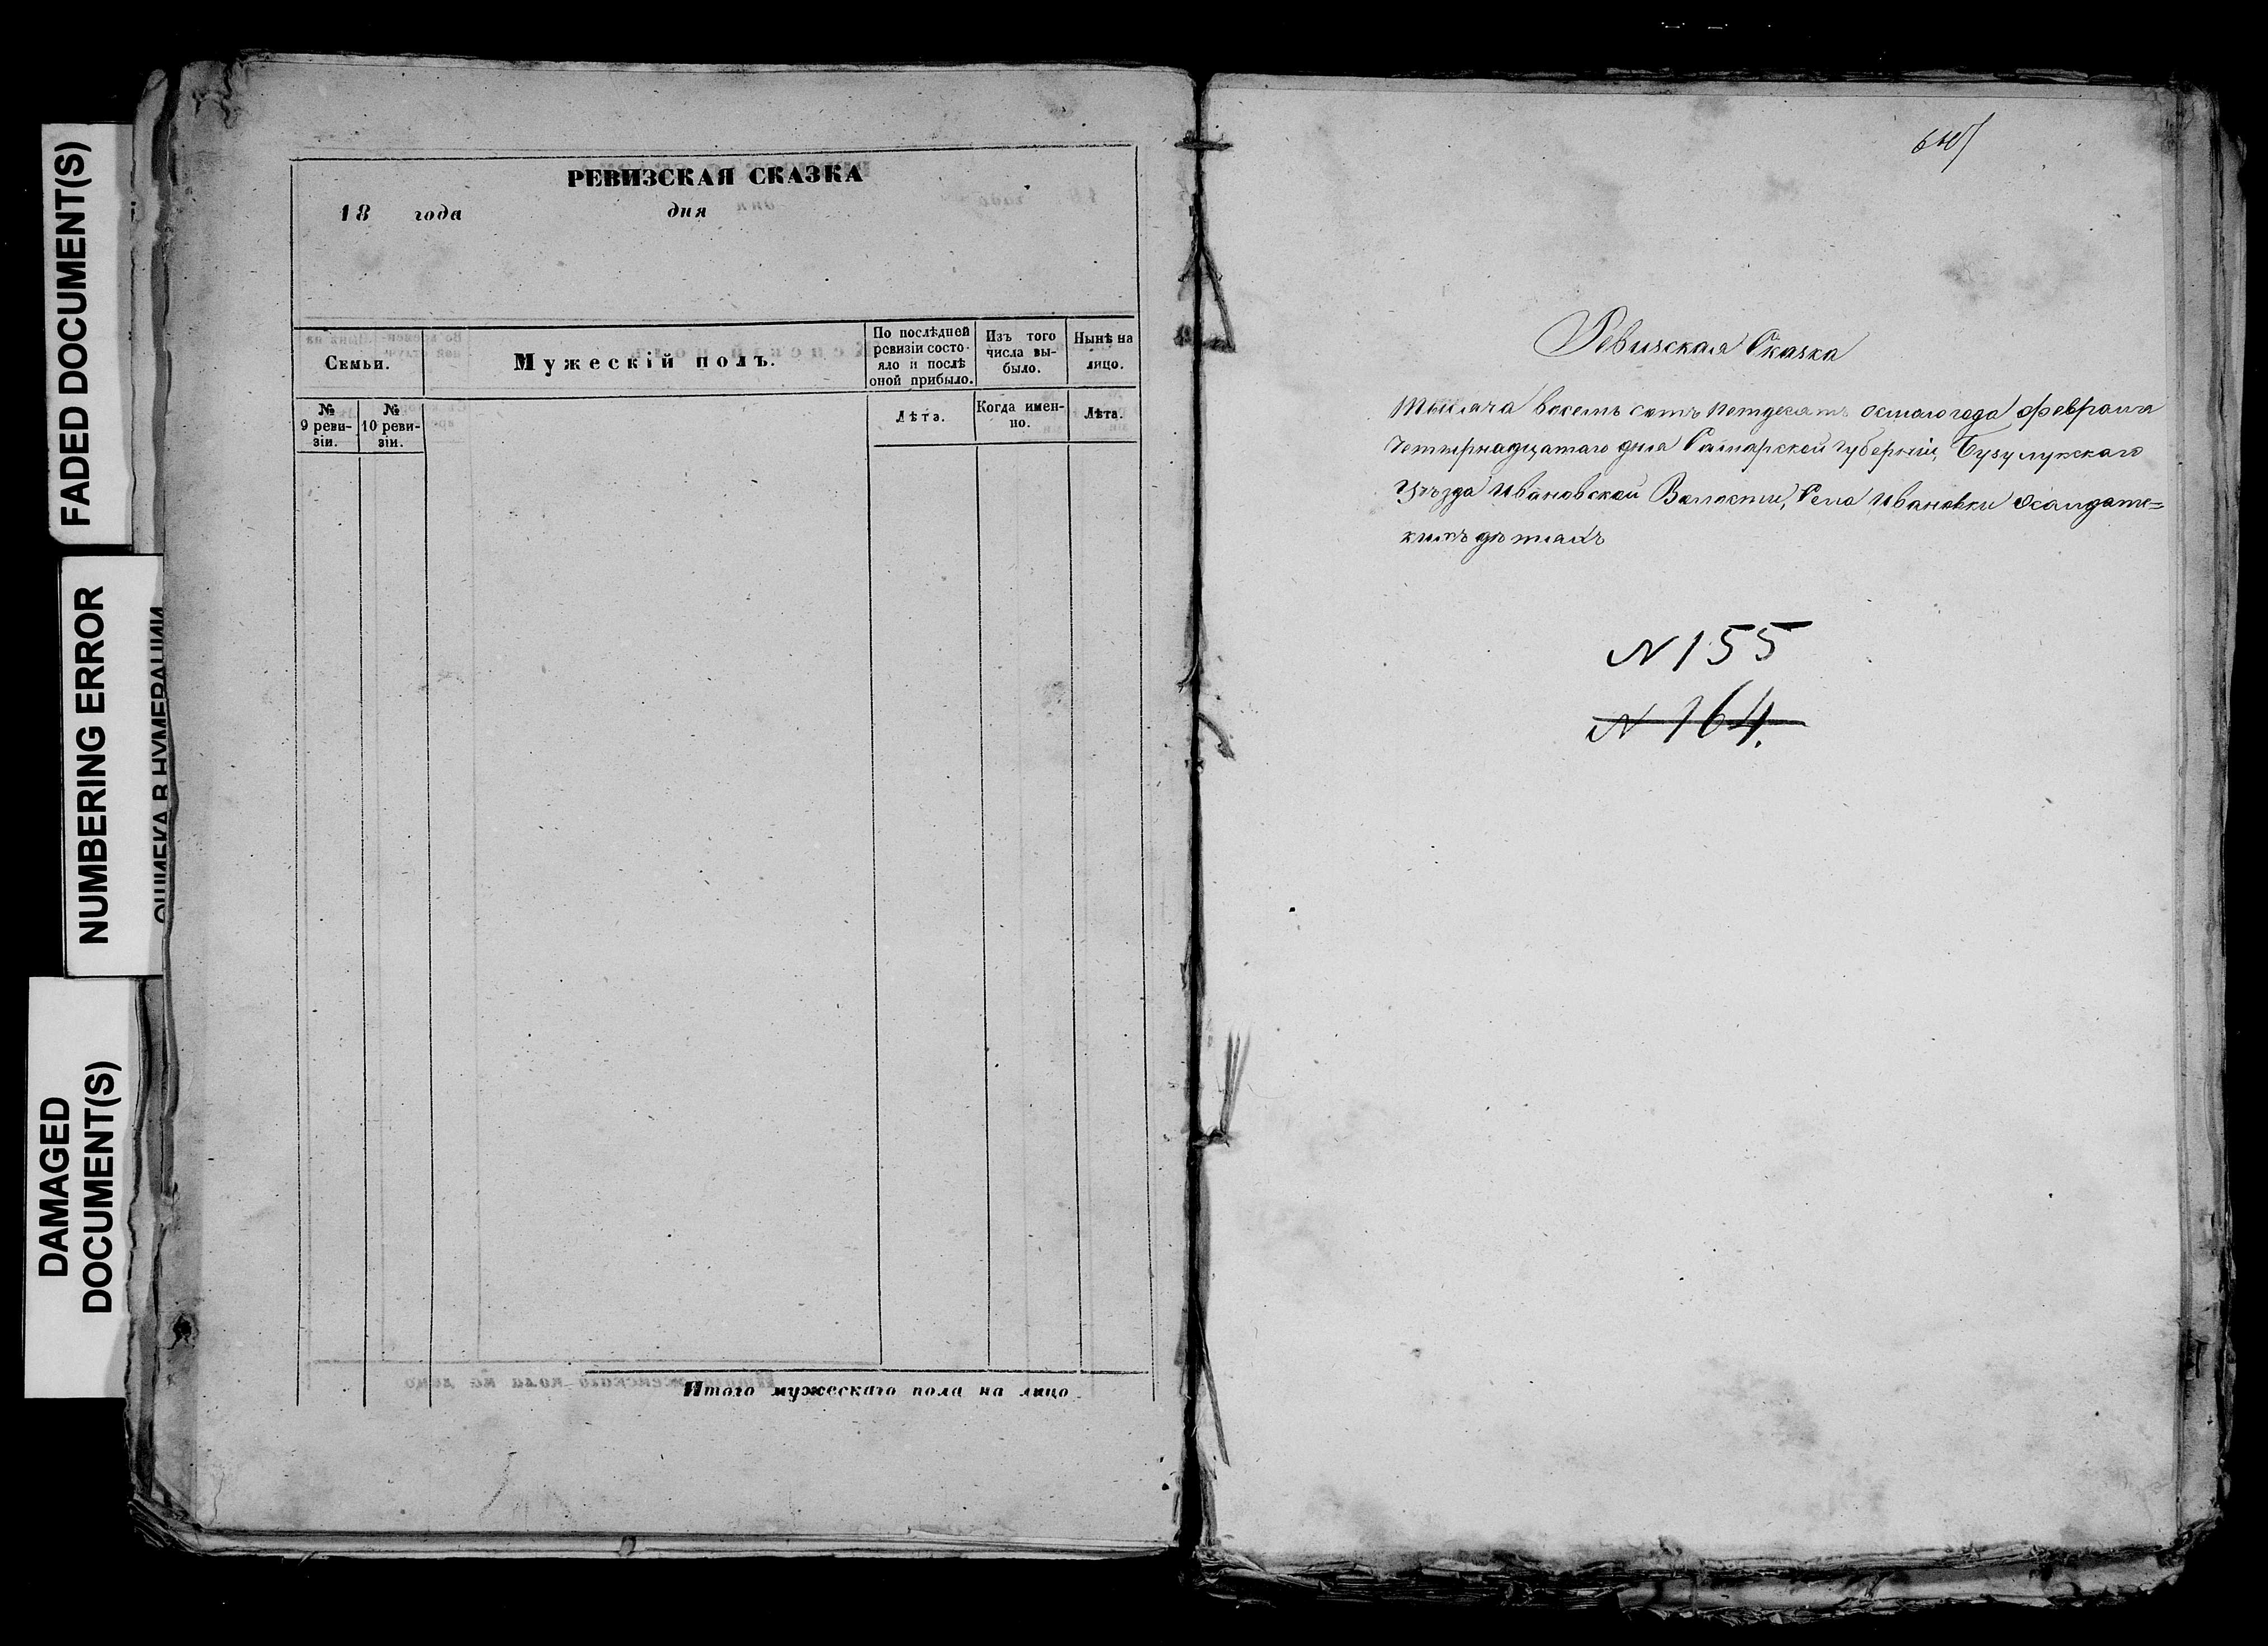 FADED DOCUMENT(S)
NUMBERING ERROR
ОШИБКА В НУМЕРАЦИИ
DAMAGED
DOCUMENT(S)
РЕВИЗСКАЯ СКАЗКА
18 года дня
Семьи.
Мужескій полъ.
По послѣдней
ревизіи состо-
яло и послѣ
оной прибыло.
Изъ того
числа вы-
было.
Нынѣ на
лицо.
№
9 реви-
зіи.
№
10 реви-
зіи.
Лѣта.
Когда имен-
но.
Лѣта.
Итого мужескаго пола на лицо
Ревизская Сказка
Тысеча восемь сотъ петдесятъ осмаго года февраля
четырнадцатаго дня Самарской губерніи, Бузулукскаго
Уѣзда Ивановской Волости, Села Ивановки осалдатс=
кихъ дѣтяхъ
N 155
N 164.